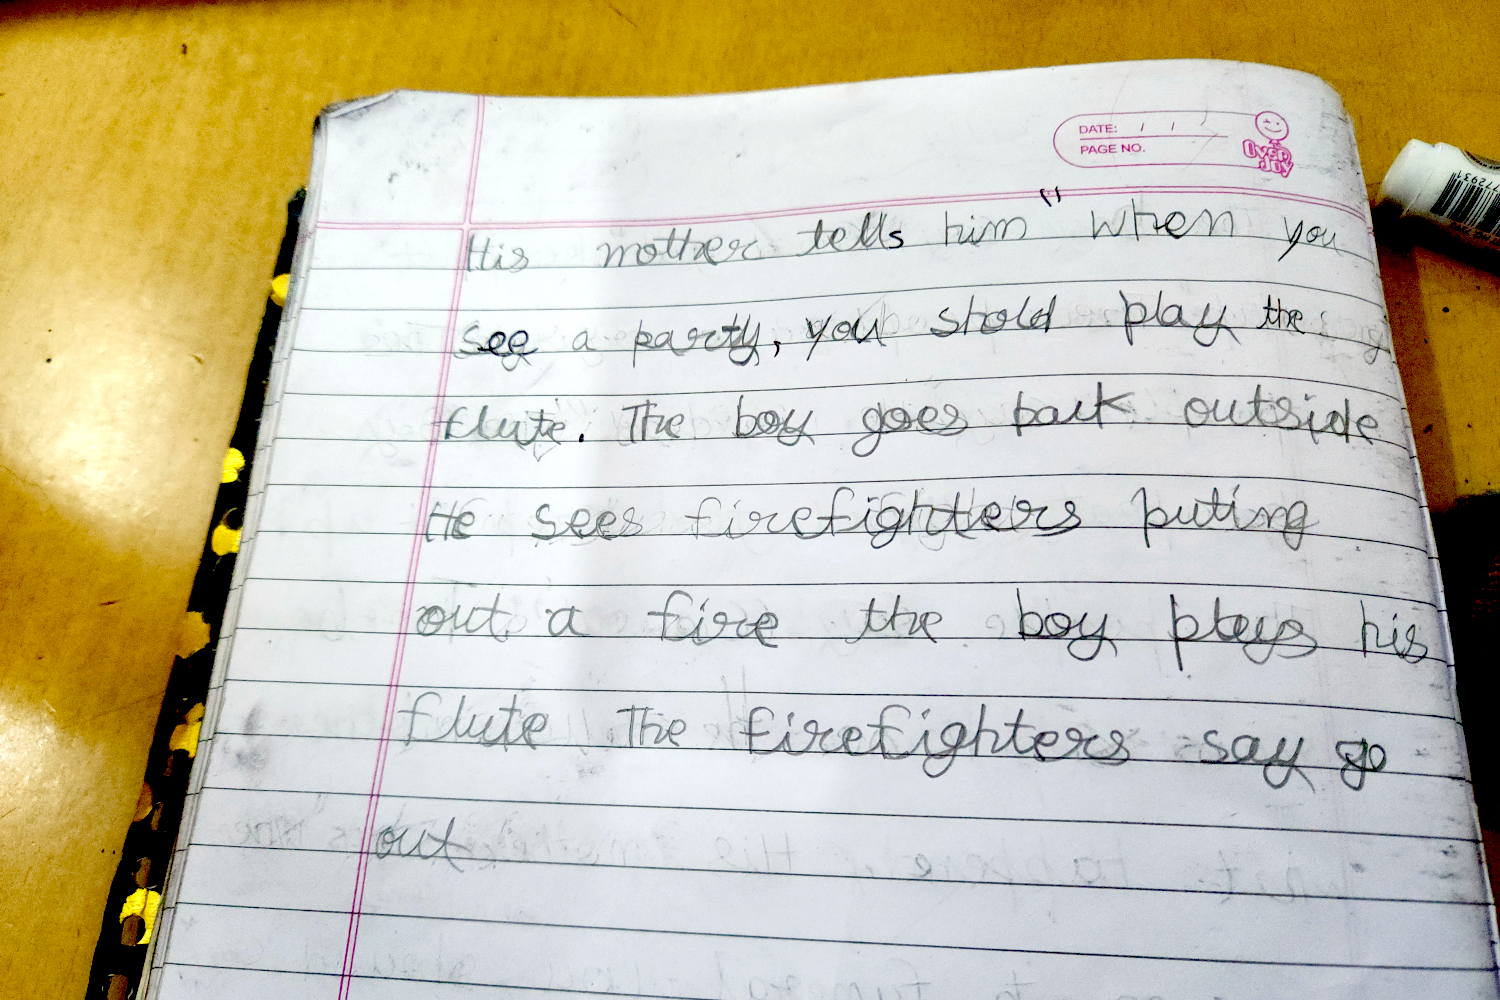 DATE: / /
PAGE NO.
OVER JOY
His mother tells him " when you
see a party, you shold play the
flute. The boy goes back outside
He sees firefighters puting
out a fire the boy plays his
flute The firefighters say go
out
772931